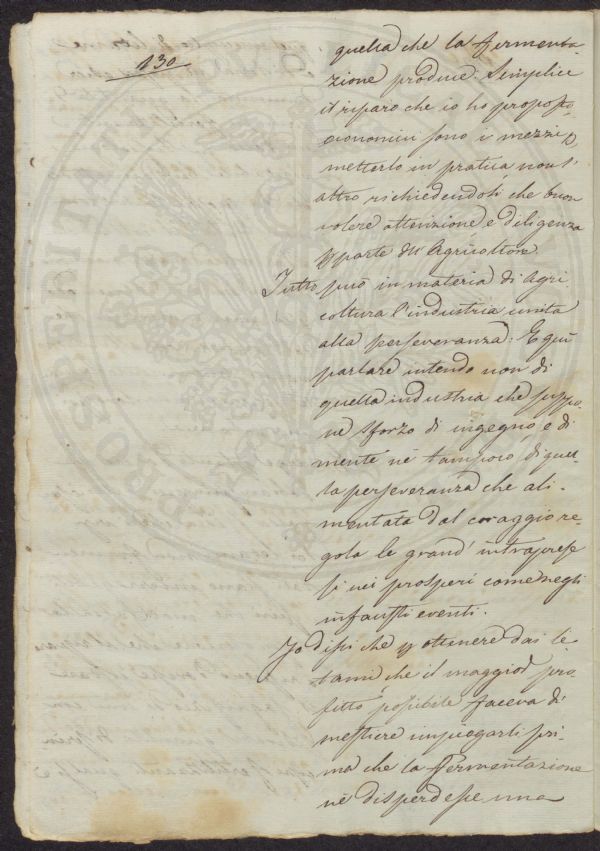 130
quella che la fermenta-
zione produce. Semplice
è il riparo che io ho proposto,
economici sono i mezzi p
metterlo in pratica non
altro richiedendosi che buon
volere attenzione e diligenza
p parte dell' Agricoltore.
Tutto può in materia di Agri
coltura l'industria unita
alla perseveranza: E quì
parlare intendo non di
quella industria che suppo-
ne sforzo di ingegno, e di
mente nè tampoco di quel-
la perseveranza che ali-
mentata dal coraggio re-
gola le grand' intraprese
sì nei prosperi come negli
infausti eventi.
Io dissi che p ottenere dai le-
tami che il maggior pro-
fitto possibile faceva di
mestiere impiegarli pri-
ma che la fermentazione
nè disperdesse una